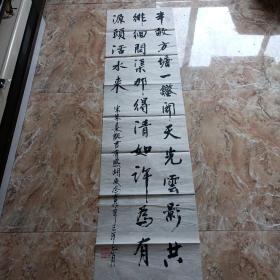 半畝方塘一鑑開天光雲影共
徘徊問渠那得清如許為有
源頭活水來
宋朱熹觀書有感